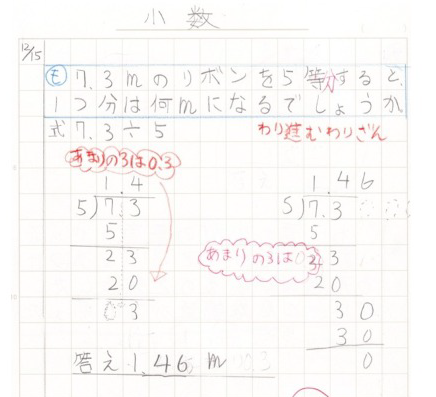 小数
12/15
も 7.3mのリボンを5等分すると、
1つ分は何mになるでしょうか
式 7.3÷5
わり進むわりざん
あまりの3は0.3
1.4
5)7.3
5
23
20
03
1.46
5)7.3
5
あまりの3は
23
20
30
30
0
答え1.46 m